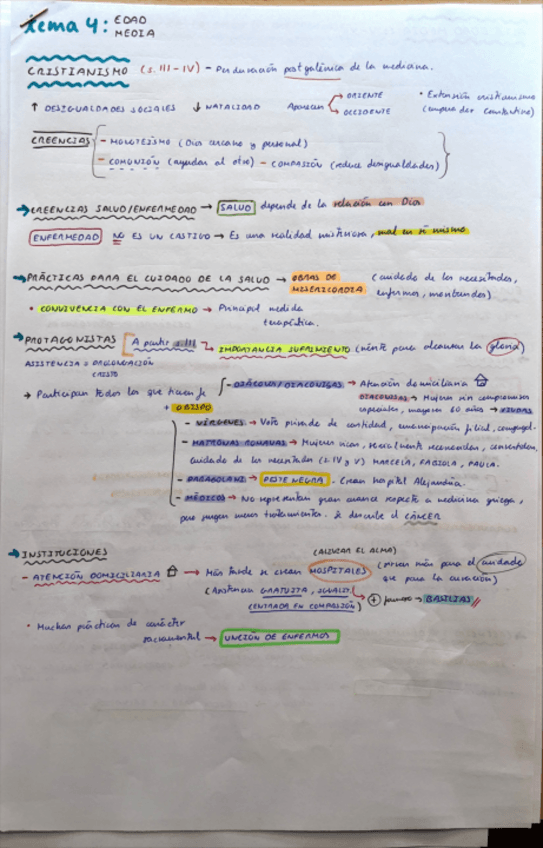 Tema 4: EDAD MEDIA
CRISTIANISMO (s. III-IV) - Perduración postgalénica de la medicina.
↑ DESIGUALDADES SOCIALES ↓ NATALIDAD Aparecen → ORIENTE • Extensión cristianismo
→ OCCIDENTE (emperador Constantino)
CREENCIAS - MONOTEÍSMO (Dios cercano y personal)
- COMUNIÓN (ayudar al otro) - COMPASIÓN (reduce desigualdades)
→ CREENCIAS SALUD/ENFERMEDAD → SALUD depende de la relación con Dios
ENFERMEDAD NO ES UN CASTIGO → Es una realidad misteriosa, mal en sí mismo
→ PRÁCTICAS PARA EL CUIDADO DE LA SALUD → OBRAS DE MISERICORDIA (cuidado de los necesitados,
enfermos, moribundos)
• CONVIVENCIA CON EL ENFERMO → Principal medida
terapéutica.
→ PROTAGONISTAS A partir s.III → IMPORTANCIA SUFRIMIENTO (mérito para alcanzar la gloria)
ASISTENCIA = PROLONGACIÓN
CRISTO
→ Participan todos los que tienen fe - DIÁCONOS/DIACONISAS → Atención domiciliaria
+ OBISPO DIACONISAS → Mujeres sin compromisos
especiales, mayores 60 años → VIUDAS
- VÍRGENES → Voto privado de castidad, emancipación filial, conyugal.
- MATRONAS ROMANAS → Mujeres ricas, socialmente reconocidas, convertidas,
cuidado de los necesitados (s. IV y V) MARCELA, FABIOLA, PAULA.
- PARABOLANI → PESTE NEGRA. Crean hospital Alejandría.
- MÉDICOS → No representan gran avance respecto a medicina griega,
pero surgen nuevos tratamientos. Se describe el CÁNCER
→ INSTITUCIONES (ALIVIAR EL ALMA)
- ATENCIÓN DOMICILIARIA → Más tarde se crean HOSPITALES (sirven más para el cuidado
que para la curación)
(Asistencia GRATUITA,
CENTRADA EN COMPASIÓN) → + famoso → BASILIAS
• Muchas prácticas de carácter
sacramental → UNCIÓN DE ENFERMOS